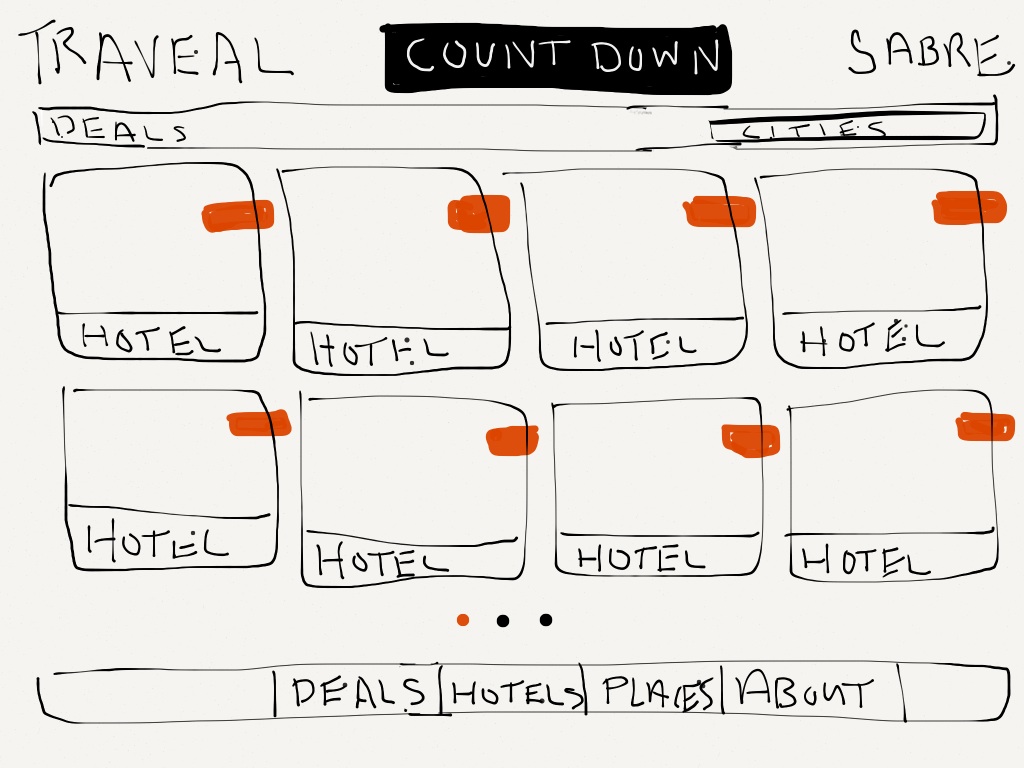 TRAVEAL COUNT DOWN SABRE.
DEALS CITIES
HOTEL HOTEL HOTEL HOTEL
HOTEL HOTEL HOTEL HOTEL
DEALS HOTELS PLACES ABOUT